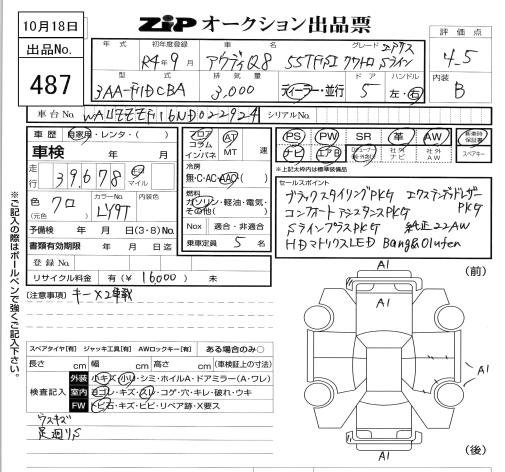 10月18日
ZIP オークション出品票
出品No.
487
年式
初年度登録
車名
グレード
R4年9月
アウディQ8
55TFSI クワトロ Sライン
評価点
4.5
型式
排気量
ドア
ハンドル
3,000
ディーラー・並行
5
左・右
内装
B
車台No.
シリアルNo.
車歴
自家用・レンタ・( )
車検
年
月
走行
39,678
km
マイル
色
クロ
(元色)
カラーNo.
LY9T
内装色
予備検
年
月
日(3・8)
書類有効期限
年
月
日
登録No
リサイクル料金
有(¥16000)
未
フロア
コラム
インパネ
AT
MT
速
冷房
無・C・AC・AAC
燃料
ガソリン・軽油・電気・
その他( )
Nox
適合・非適合
乗車定員
5
名
PS
PW
SR
革
AW
新車時
保証書
ナビ
エアB
社外
ナビ
社外
AW
スペアキー
※上記太枠内は標準装備品
セールスポイント
ブラックスタイリングPKG エクステンデッドレザー
PKG
コンフォートアシスタンスPKG
SラインプラスPKG 純正22AW
HDマトリクスLED Bang&Olufsen
[注意事項]
キー×2車載
※ご記入の際はボールペンで強くご記入下さい。
スペアタイヤ[有] ジャッキ工具[有] AWロックキー[有]
ある場合のみ○
長さ
cm
幅
cm
高さ
cm
(車検証上の寸法)
検査記入
外装
小キズ・小凹・シミ・ホイルA・ドアミラー(A・ワレ)
室内
ヨゴレ・キズ・スレ・コゲ・穴・キレ・破れ・ウキ
FW
トビ石・キズ・ヒビ・リペア跡・X要ス
ウスキズ
足廻りS
(前)
A1
A1
A1
A1
A1
(後)